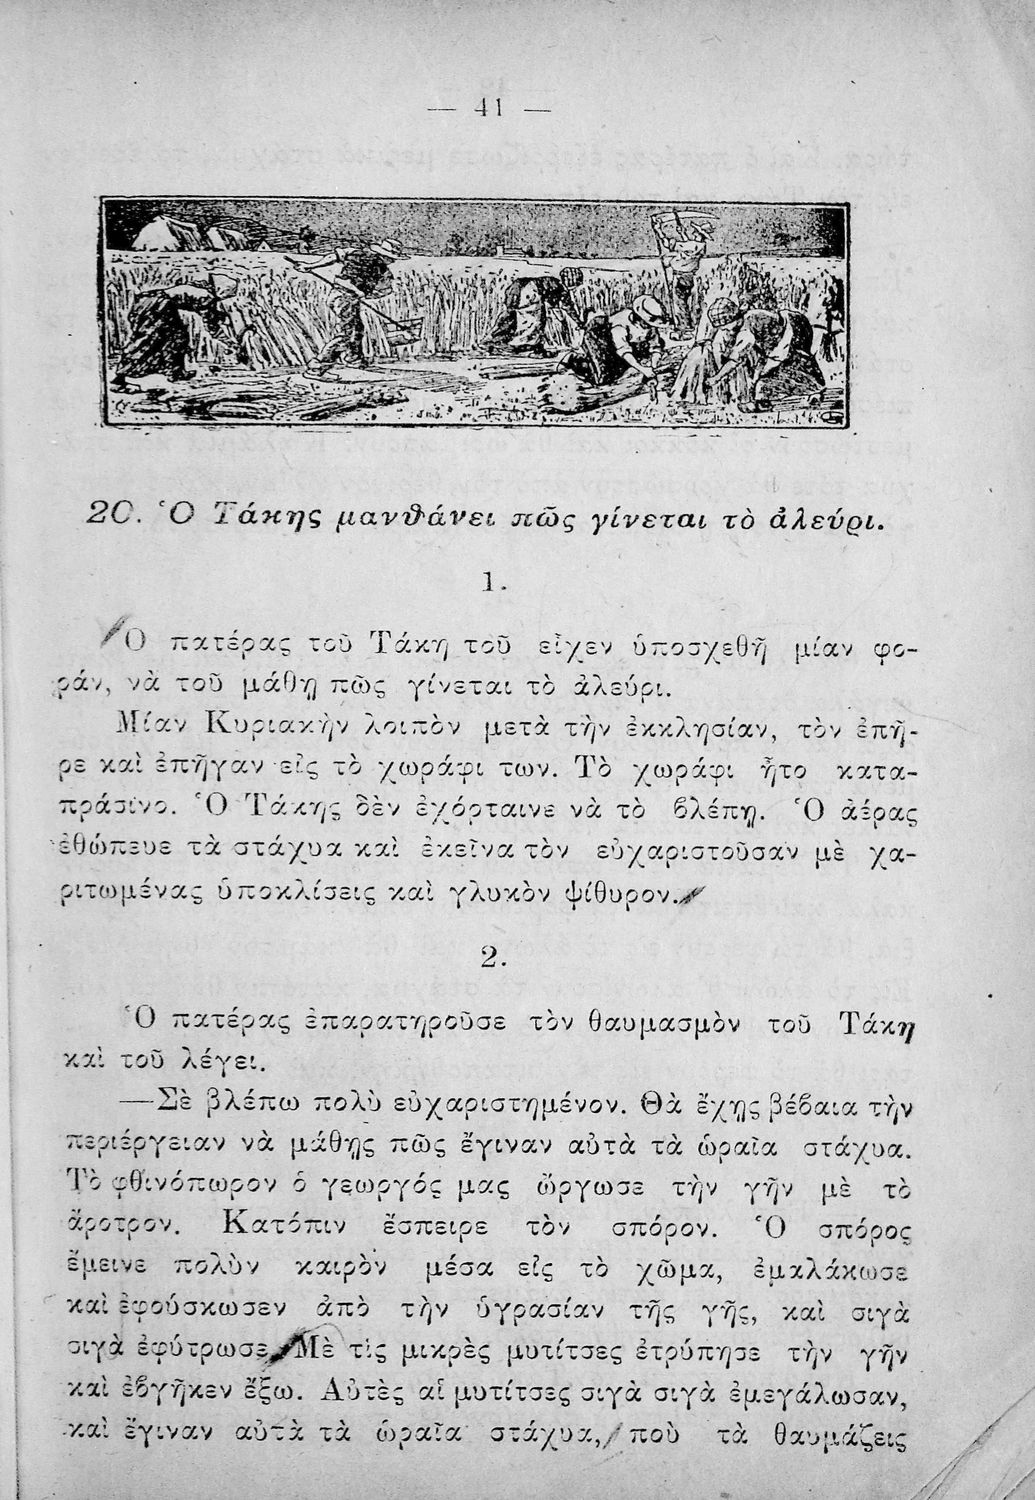 — 41 —
20. Ὁ Τάκης μανθάνει πῶς γίνεται τὸ ἀλεύρι.
1.
Ὁ πατέρας τοῦ Τάκη τοῦ εἶχεν ὑποσχεθῆ μίαν φο-
ράν, νὰ τοῦ μάθῃ πῶς γίνεται τὸ ἀλεύρι.
Μίαν Κυριακὴν λοιπὸν μετὰ τὴν ἐκκλησίαν, τὸν ἐπῆ-
ρε καὶ ἐπῆγαν εἰς τὸ χωράφι των. Τὸ χωράφι ἦτο κατα-
πράσινο. Ὁ Τάκης δὲν ἐχόρταινε νὰ τὸ βλέπῃ. Ὁ ἀέρας
ἐθώπευε τὰ στάχυα καὶ ἐκεῖνα τὸν εὐχαριστοῦσαν μὲ χα-
ριτωμένας ὑποκλίσεις καὶ γλυκὸν ψίθυρον.
2.
Ὁ πατέρας ἐπαρατηροῦσε τὸν θαυμασμὸν τοῦ Τάκη
καὶ τοῦ λέγει.
—Σὲ βλέπω πολὺ εὐχαριστημένον. Θὰ ἔχῃς βέβαια τὴν
περιέργειαν νὰ μάθῃς πῶς ἔγιναν αὐτὰ τὰ ὡραῖα στάχυα.
Τὸ φθινόπωρον ὁ γεωργός μας ὤργωσε τὴν γῆν μὲ τὸ
ἄροτρον. Κατόπιν ἔσπειρε τὸν σπόρον. Ὁ σπόρος
ἔμεινε πολὺν καιρὸν μέσα εἰς τὸ χῶμα, ἐμαλάκωσε
καὶ ἐφούσκωσεν ἀπὸ τὴν ὑγρασίαν τῆς γῆς, καὶ σιγὰ
σιγὰ ἐφύτρωσε. Μὲ τὶς μικρὲς μυτίτσες ἐτρύπησε τὴν γῆν
καὶ ἐβγῆκεν ἔξω. Αὐτὲς αἱ μυτίτσες σιγὰ σιγὰ ἐμεγάλωσαν,
καὶ ἔγιναν αὐτὰ τὰ ὡραῖα στάχυα, ποὺ τὰ θαυμάζεις